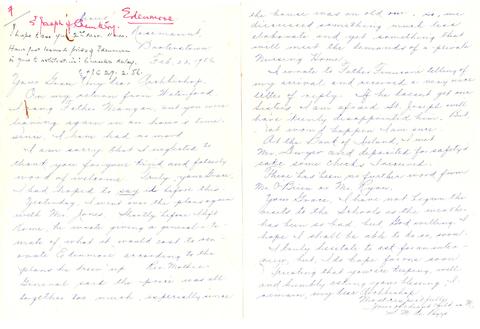 Edenmore
St Joseph of Cluny
I hope to see you
Have just learned price of Edenmore
Rosemount,
Booterstown
Feb. 22, 1956
Your Grace, My dear Archbishop,
On my return from Waterford
I rang Father Mangan, but you were
having again in an hour's time.
Since, I have had no word
I am sorry that I neglected to
thank you for your kind and fatherly
word of welcome. Truly, your Grace,
I had hoped to say it before this.
Yesterday, I went over the plans again
with Mr. Jones. Shortly before I left
Rome, he wrote giving a general esti-
mate of what it would cost to ren-
ovate Edenmore according to the
plans he drew up. Rev. Mother
General said the price was all
together too much, especially since
the house was an old one. So, we
discussed something much less
elaborate and yet something that
will meet the demands of a private
Nursing Home.
I wrote to Father Finucane telling of
my arrival and received a very nice
letter of reply. If he hasn't got one
Sister, I am afraid St. Joseph will
have already disappointed him. But
that won't happen I am sure.
At the Bank of Ireland, I met
Mr. Dwyer and deposited for safety's
sake some checks I received.
There has been no further word from
Mr. O'Brien or Mr. Ryan.
Your Grace, I have not begun the
visits to the Schools as the weather
has been so bad, but God willing, I
hope I shall be able to do so soon.
I hardly hesitate to ask for an inter-
view, but, I do hope for one soon
Trusting that you're keeping well,
and humbly asking your blessing, I
remain, my dear Archbishop
Most respectfully